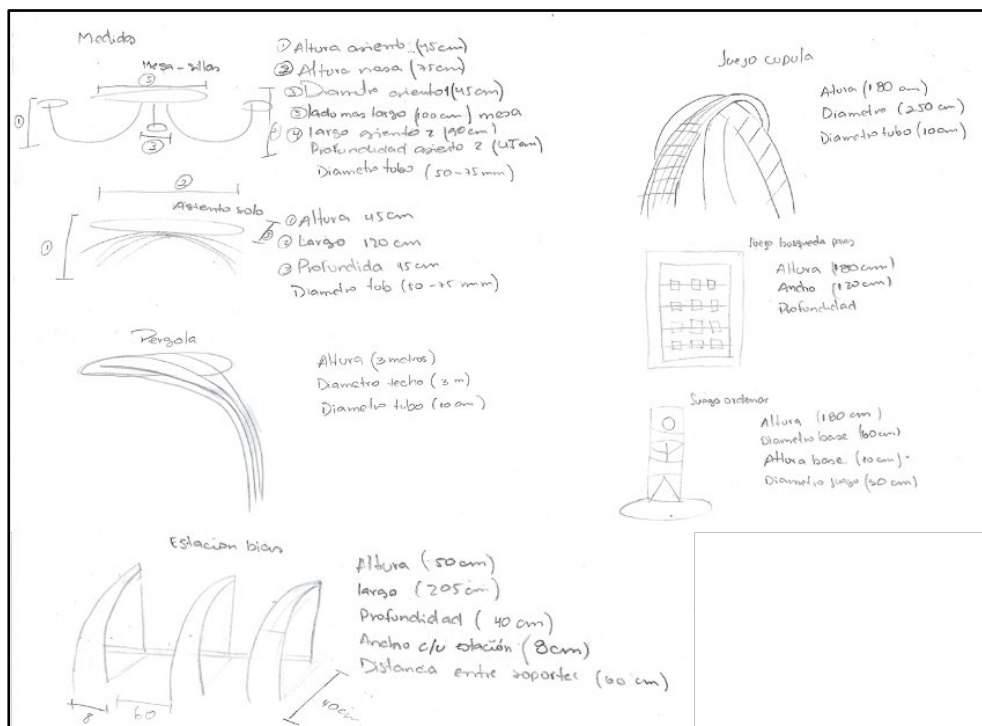 Medidas
Mesa-sillas
① Altura asiento (45cm)
② Altura mesa (75cm)
③ Diametro asiento 1 (45cm)
⑤ lado mas largo (100 cm) mesa
④ largo asiento 2 (90cm)
Profundidad asiento 2 (45cm)
Diametro tubo (50-75mm)
⑤
①
③
②
Asiento solo
① Altura 45cm
② Largo 120 cm
③ Profundida 45cm
Diametro tub (50-75 mm)
①
③
Pergola
Altura (3 metros)
Diametro techo (3 m)
Diametro tubo (10cm)
Estacion bicis
Altura (50cm)
largo (205cm)
Profundidad (40cm)
Ancho c/u estación (8cm)
Distancia entre soportes (60 cm)
8
60
40cm
Juego cupula
Altura (180 cm)
Diametro (250 cm)
Diametro tubo (10cm)
Juego busqueda
Altura (180cm)
Ancho (120cm)
Profundidad
Juego ordenar
Altura (180cm)
Diametro base (60cm)
Altura base (10cm)
Diametro juego (30cm)